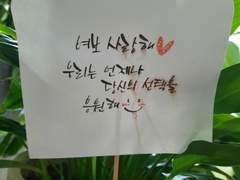 여보 사랑해
우리는 언제나
당신의 선택을
응원해